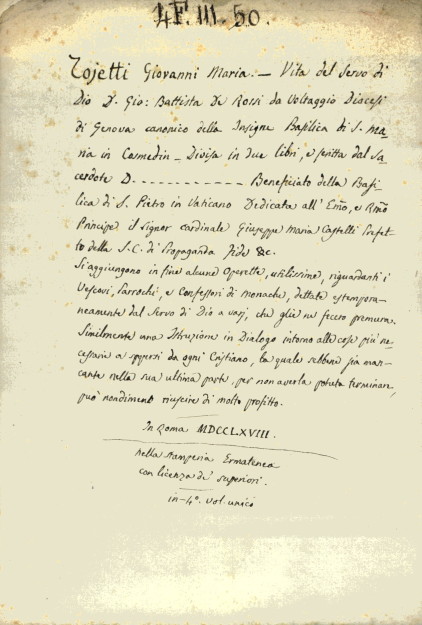 4F. III. 50.
Tojetti Giovanni Maria. — Vita del Servo di
Dio D. Gio: Battista De Rossi da Voltaggio Diocesi
di Genova canonico della Insigne Basilica di S. Ma=
ria in Cosmedin — Divisa in due libri, e scritta dal Sa=
cerdote D. - - - - - - - - - - - Beneficiato della Basi=
lica di S. Pietro in Vaticano Dedicata all' Emo, e Rmo
Principe il Signor cardinale Giuseppe Maria Castelli Prefet=
to della S. C. di Propaganda Fide &c.
Si aggiungono in fine alcune Operette, utilissime, riguardanti i
Vescovi, Parrochi, e Confessori di monache, dettate estempora=
neamente dal Servo di Dio a varj, che glie ne fecero premura.
Similmente una Istruzione in Dialogo intorno alle cose più ne=
cessarie a sapersi da ogni Cristiano, la quale sebbene sia man=
cante nella sua ultima parte, per non averla potuta terminare,
può nondimeno riuscire di molto profitto.
In Roma MDCCLXVIII.
nella stamperia Ermatenea
con licenza de' superiori.
in-4°. vol. unico